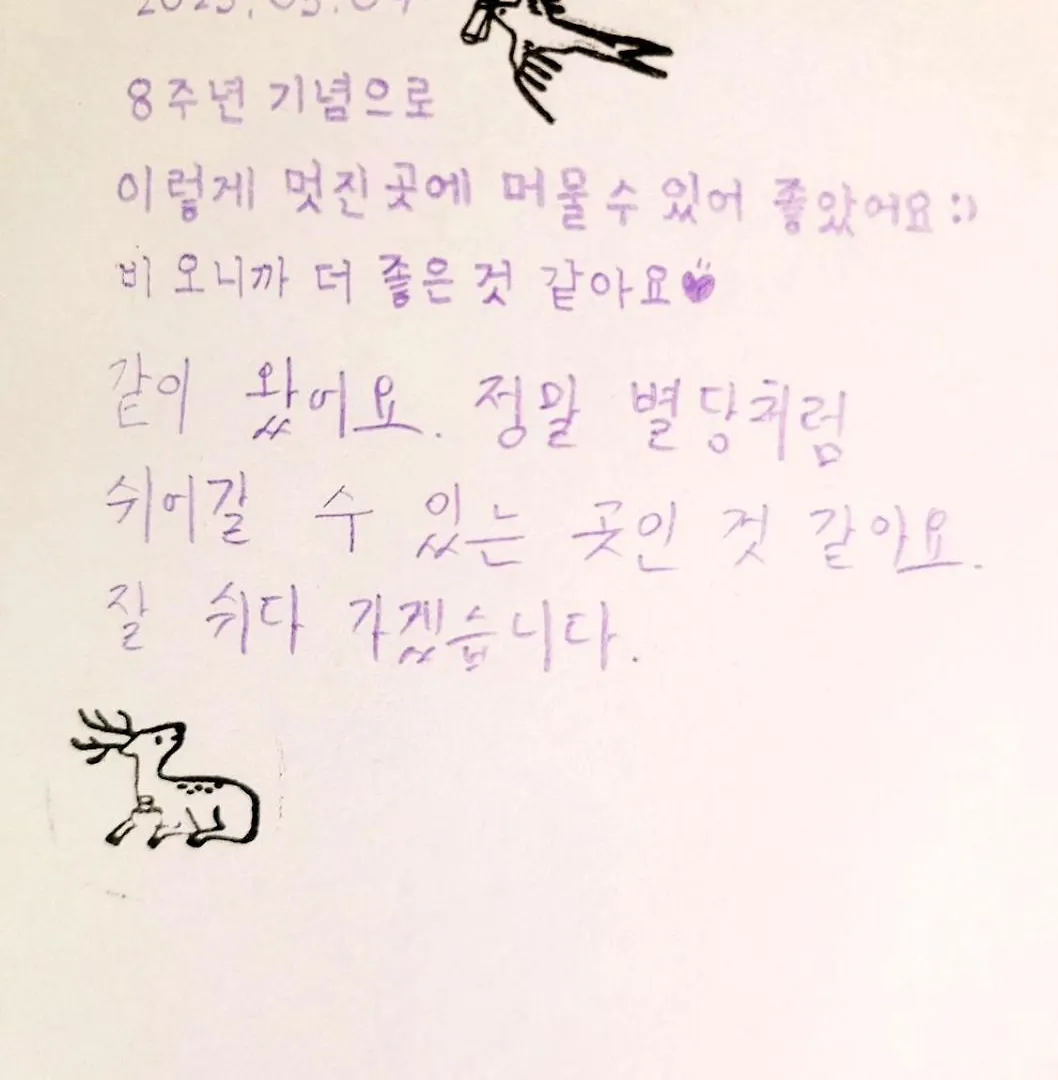 8주년 기념으로
이렇게 멋진 곳에 머물 수 있어 좋았어요 :)
비 오니까 더 좋은 것 같아요♥
같이 왔어요. 정말 별당처럼
쉬어갈 수 있는 곳인 것 같아요.
잘 쉬다 가겠습니다.